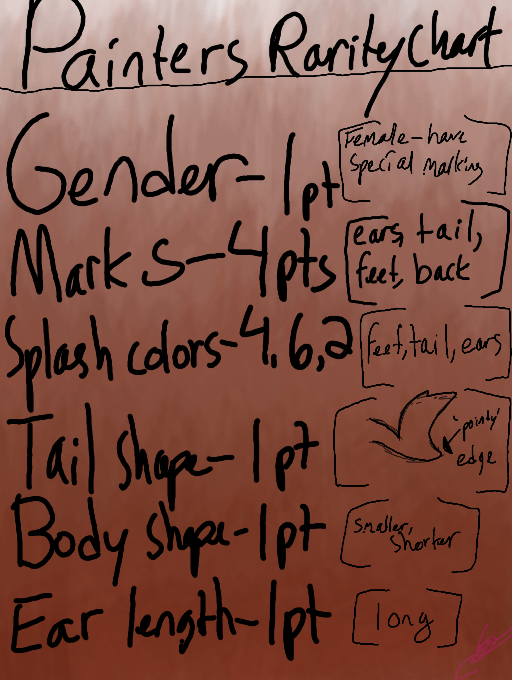 Painters Rarity Chart
Gender-1pt
Female-have
special marking
Marks-4pts
ears, tail,
feet, back
Splash colors-4,6,2
Feet, tail, ears
Tail shape-1pt
"pointy"
edge
Body shape-1pt
smaller,
shorter
Ear length-1pt
long